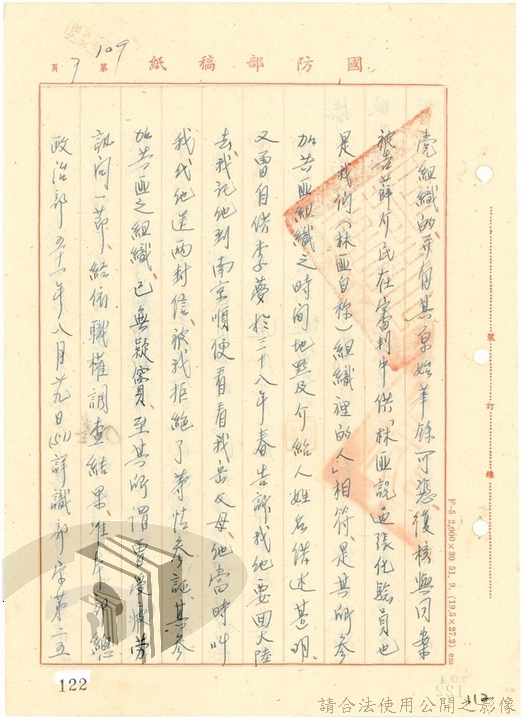 國防部稿紙
第109頁
黨組織的,並有其原始筆錄可憑,復核與同案
被告薛介民在審判中供「林匪說連張化驗員也
是我們(林匪自稱)組織裡的人」相符,是其所參
加共匪組織之時間地點及介紹人姓名供述甚明,
又曾自供李夢於三十八年春告訴我他要回大陸
去,我託他到南京順便看看我岳父母,他當時叫
我代他送兩封信,被我拒絕了等情參証其參
加共匪之組織,已無疑竇,至其所謂曾受疲勞
訊問一節,經依職權調查結果,准本部總
政治部五十一年八月廿九日(51)詳識部字第二五
裝訂線
F-5 2,000×30 51. 9. (19.5×27.2) cm
122
112
請合法使用公開之影像